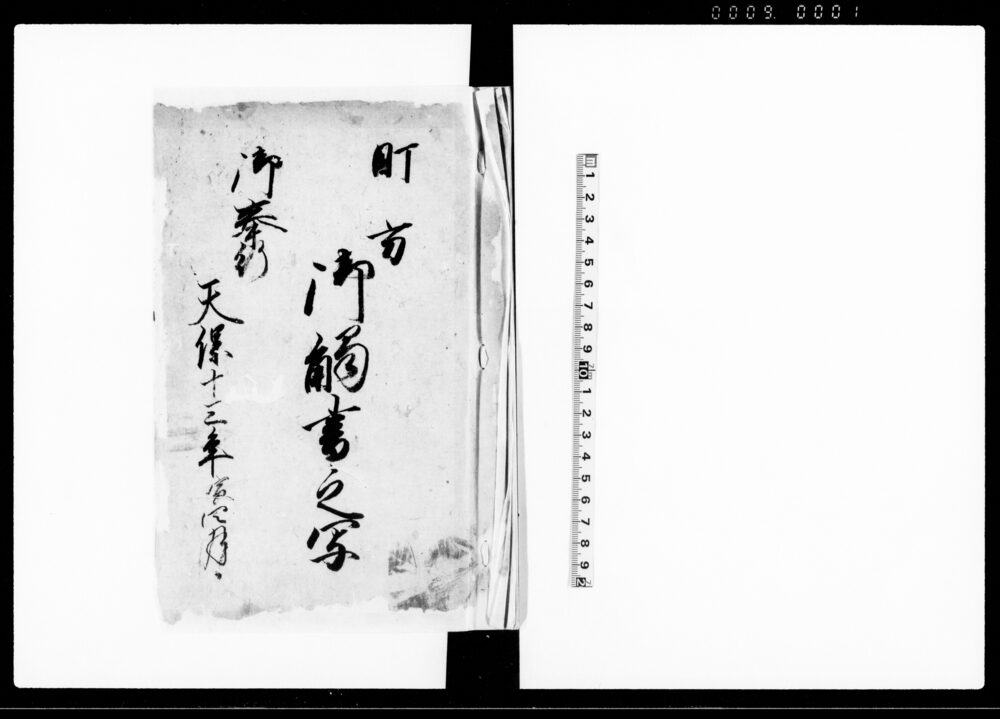 0009 0001
町方
御觸書之写
御奉行
天保十三年寅四月
1 2 3 4 5 6 7 8 9 10 1 2 3 4 5 6 7 8 9 2